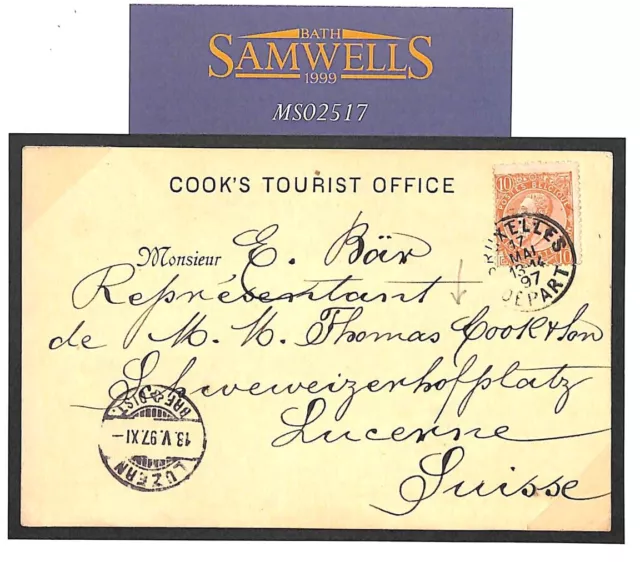 BATH
SAMWELLS
1999
MS02517
COOK'S TOURIST OFFICE
10 10
BRUXELLES
17
MAI
13-14
97
DEPART
Monsieur E. Bär
Représentant
de M. M. Thomas Cook & Son
Schweweizerhofplatz
Lucerne
Suisse
LUZERN
18.V.97.XI-
BRF. DIST.